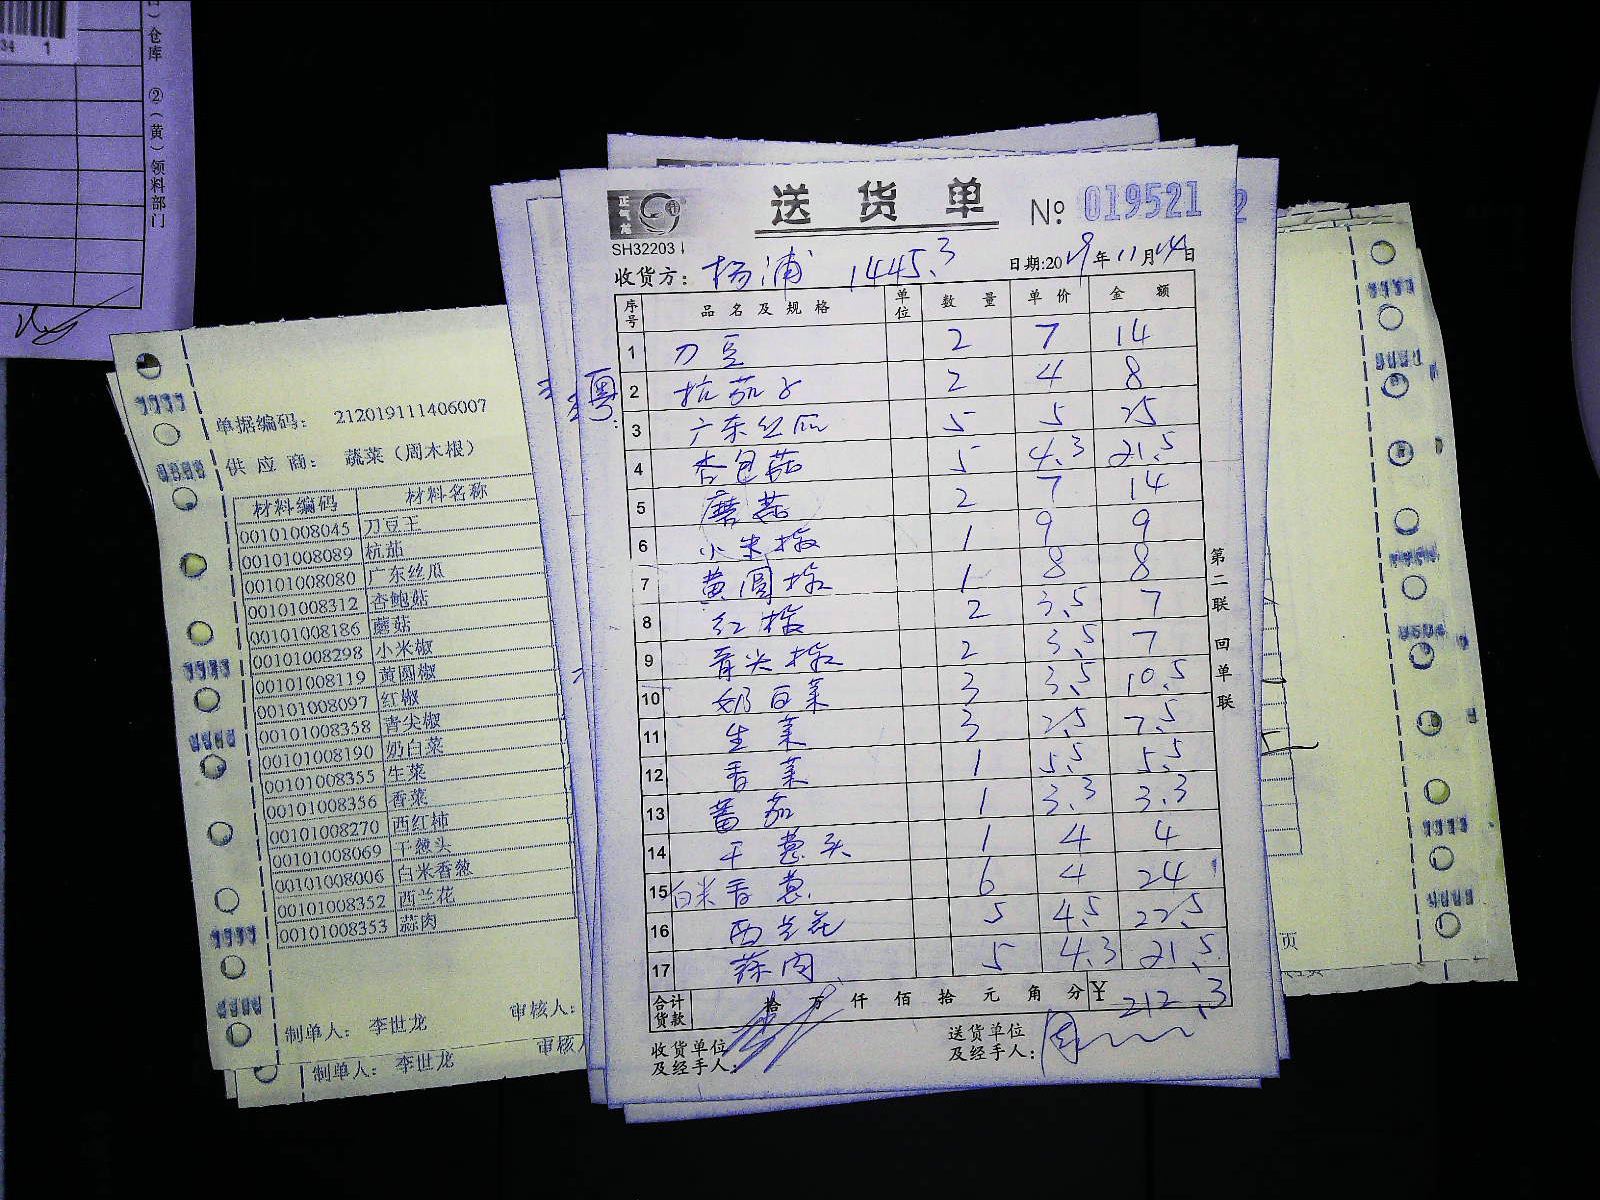 34 1
仓库 ②(黄)领料部门
单据编码: 212019111406007
供应商: 蔬菜(周木根)
材料编码 材料名称
00101008045 刀豆王
00101008089 杭茄
00101008080 广东丝瓜
00101008312 杏鲍菇
00101008186 蘑菇
00101008298 小米椒
00101008119 黄圆椒
00101008097 红椒
00101008358 青尖椒
00101008190 奶白菜
00101008355 生菜
00101008356 香菜
00101008270 西红柿
00101008069 干葱头
00101008006 白米香葱
00101008352 西兰花
00101008353 蒜肉
制单人: 李世龙 审核人:
制单人: 李世龙 审核人
粤
正气龙
SH32203
送货单 № 019521
2
收货方: 杨浦 1445.3 日期:2019年11月14日
序号 品名及规格 单位 数量 单价 金额
1 刀豆 2 7 14
2 杭茄子 2 4 8
3 广东丝瓜 5 5 25
4 杏包菇 5 4.3 21.5
5 蘑菇 2 7 14
6 小米椒 1 9 9
7 黄圆椒 1 8 8
8 红椒 2 3.5 7
9 青尖椒 2 3.5 7
10 奶白菜 3 3.5 10.5
11 生菜 3 2.5 7.5
12 香菜 1 5.5 5.5
13 蕃茄 1 3.3 3.3
14 干葱头 1 4 4
15 白米香葱 6 4 24
16 西兰花 5 4.5 22.5
17 蒜肉 5 4.3 21.5
合计货款 拾万仟佰拾元角分 ¥ 212.3
收货单位及经手人: 送货单位及经手人: 周
第二联 回单联
页